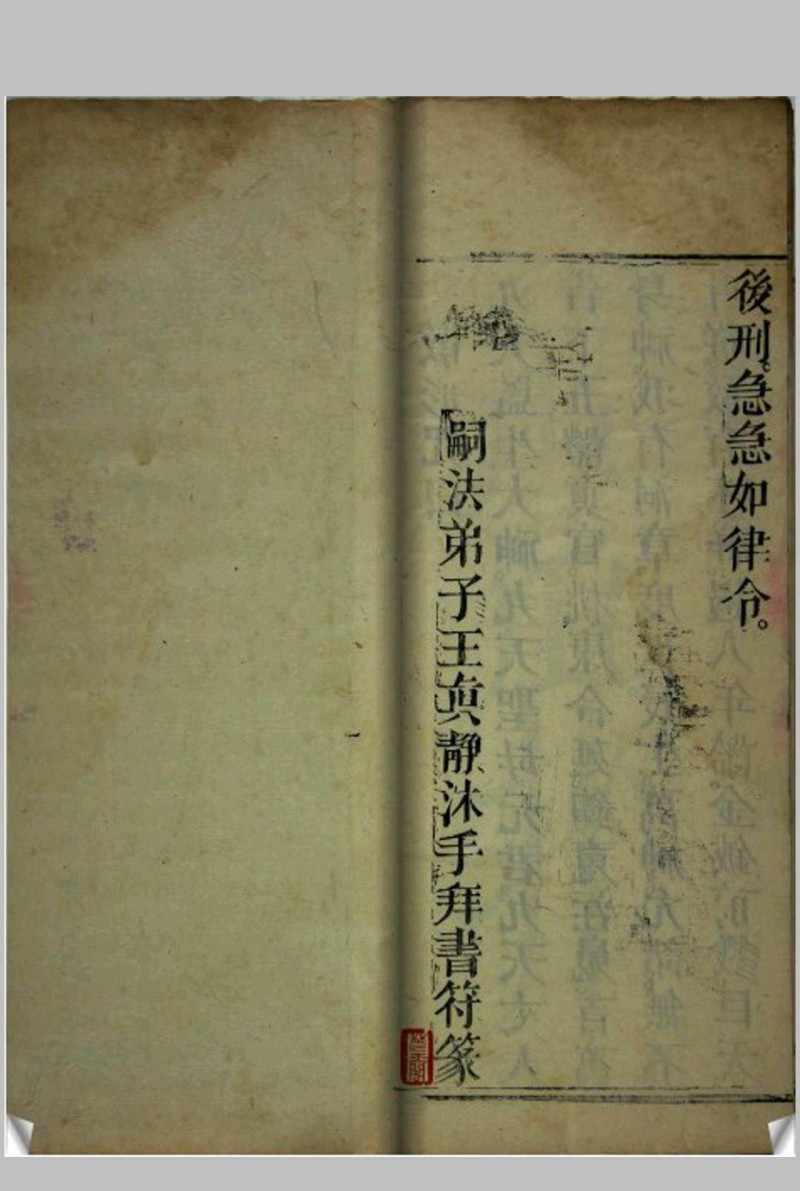 後刑。急急如律令。
嗣法弟子王眞靜沐手拜書符篆